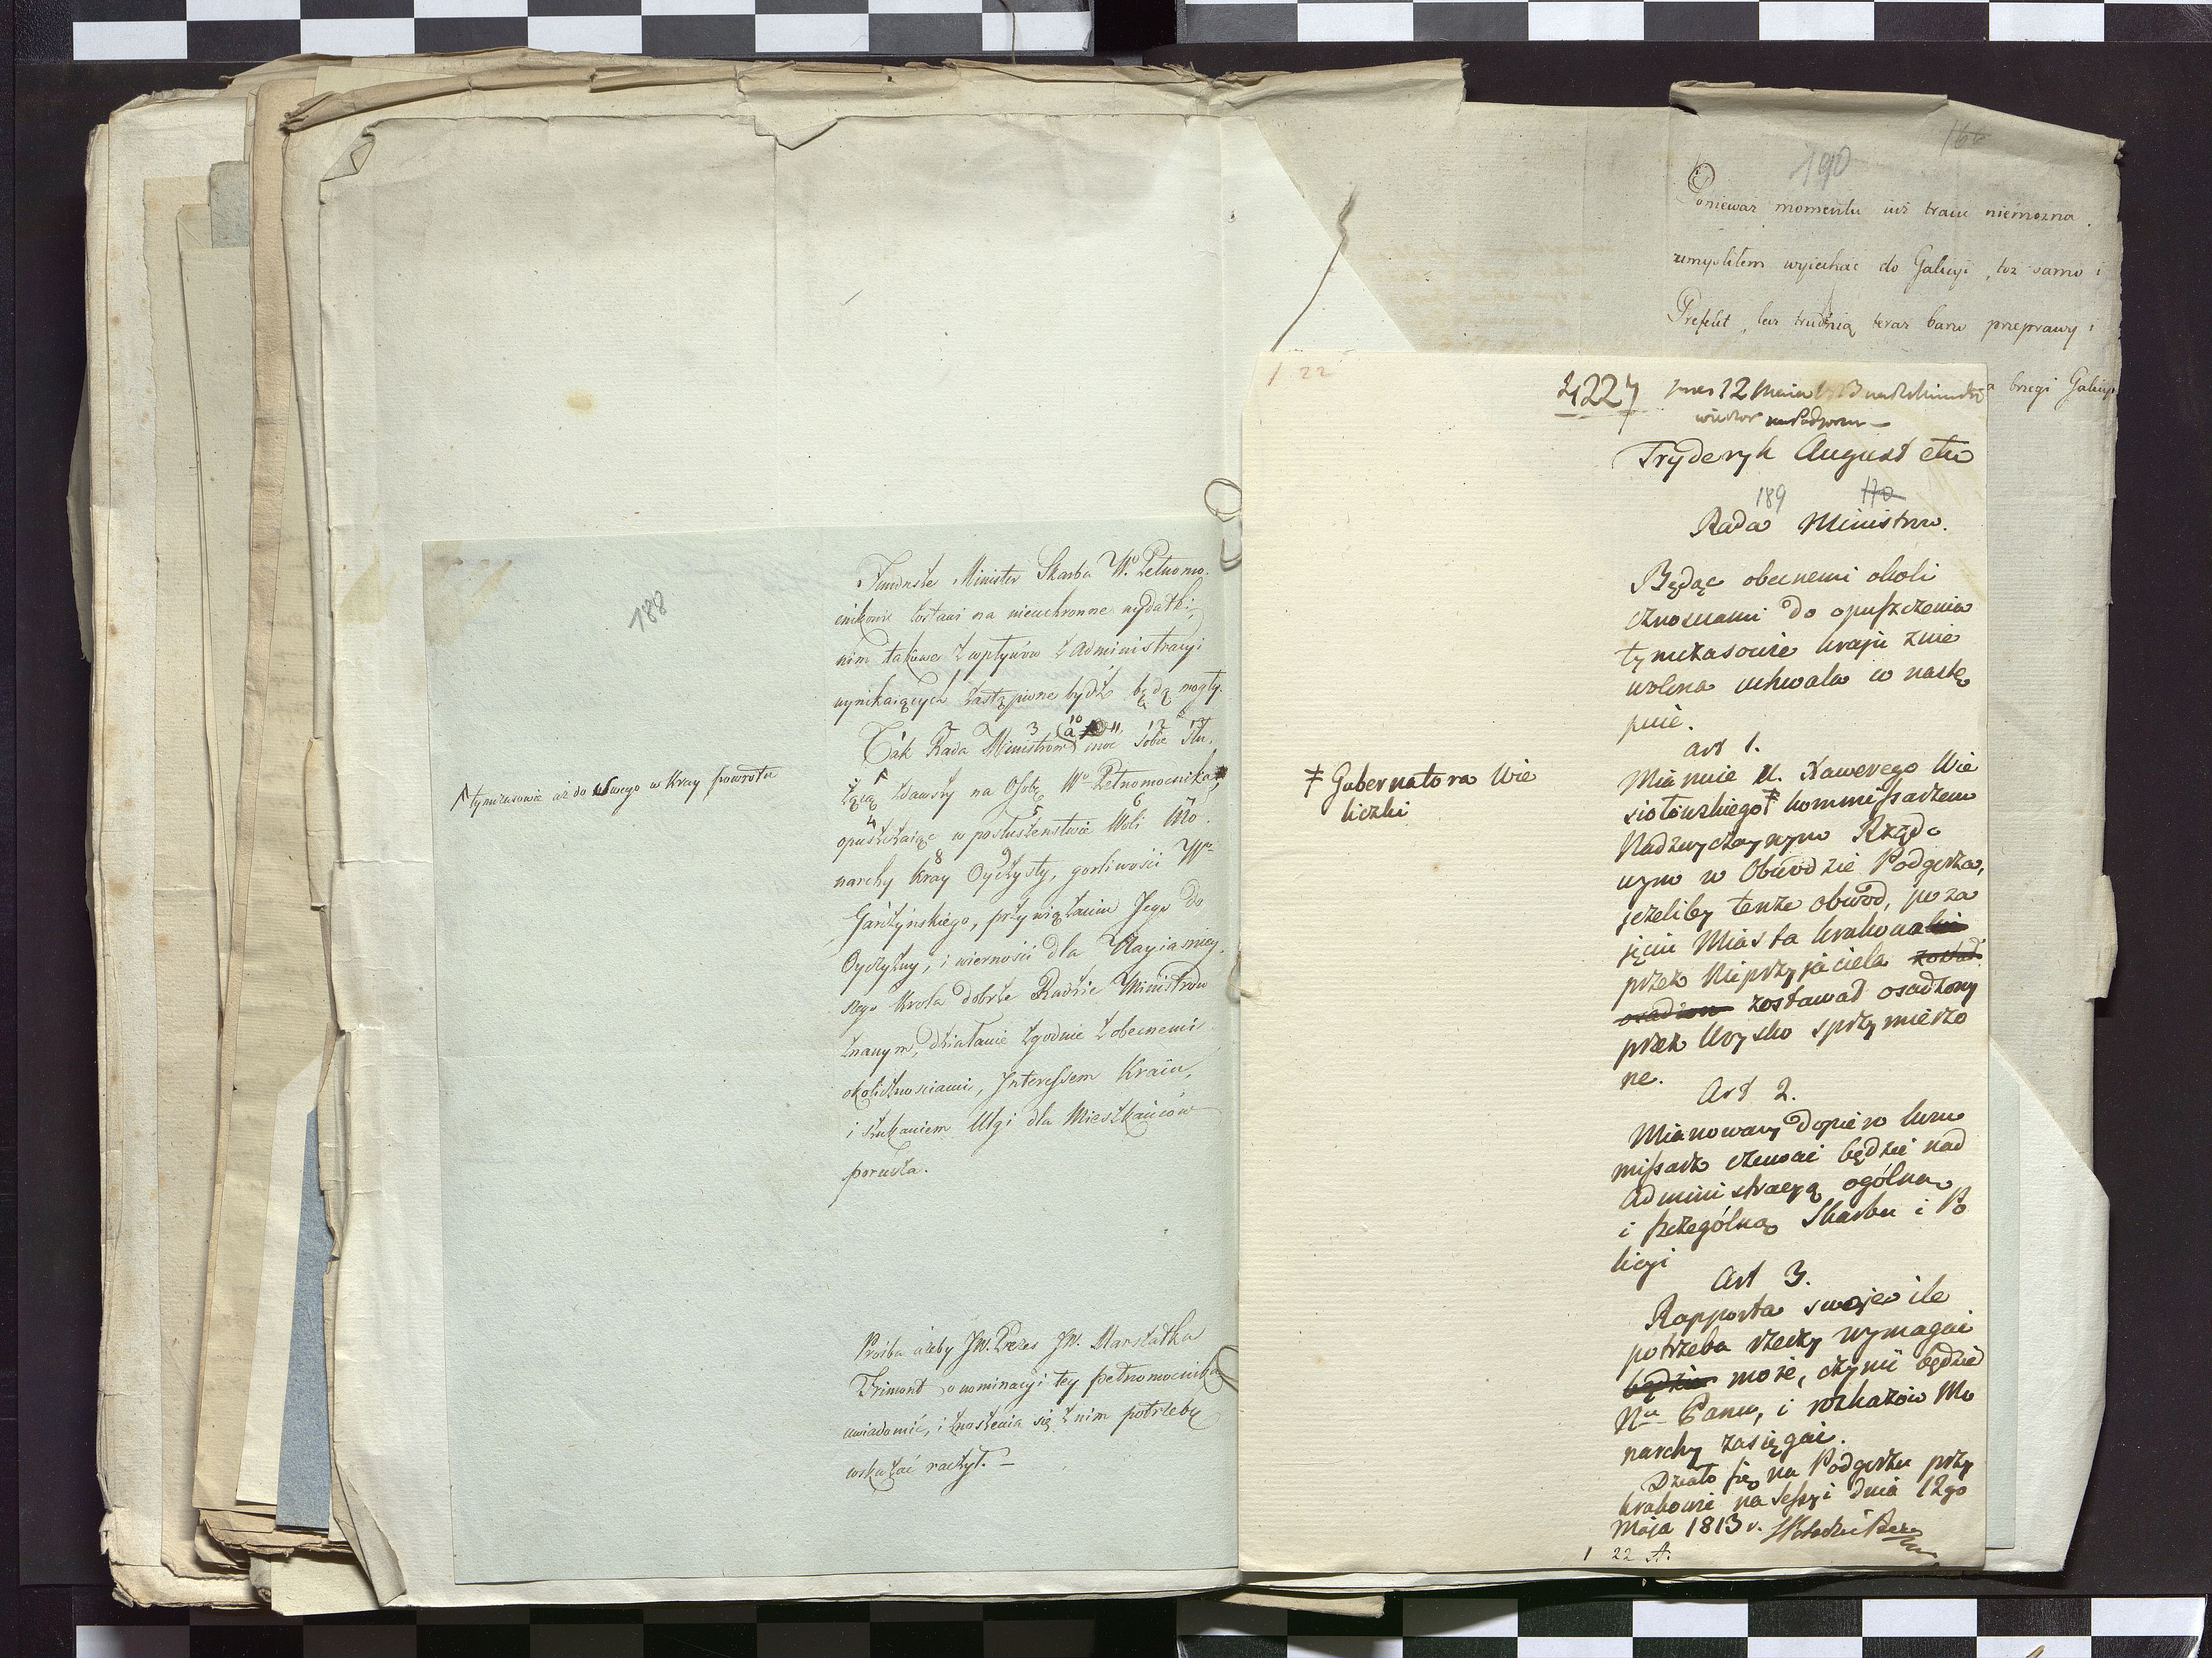 188
Fundusze Minister Skarbu Wu Pełnomo-
cnikowi zostawi na nieuchronne wydatki,
nim takowe z wpływów z Administracyi
wynikaiących zastąpione bydź będą mogły.
Tak Rada Ministrów moc Sobie Słu-
żącą zdawszy na Osobę Wo Pełnomocnika,
^ tymczasowie aż do swego w Kray powrotu
opuszczaiąc w posłuszenstwie Woli Mo-
narchy Kray Oyczysty, gorliwości Wo
Garczyńskiego, przywiązaniu Jego do
Oyczyzny, i wierności dla Nayiaśniey-
szego Krola dobrze Radzie Ministrów
znanym, działanie zgodnie z obecnemi
okolicznościami, Interessem Kraiu,
i szukaniem Ulgi dla Mieszkańców
porucza.
Prośba ażeby JW. Prezes JW. Marszałka
Frimont o nominacyi tey pełnomocnika
uwiadomić, i znoszenia się z nim potrzebę
wskazać raczył. —
166
190
Ponieważ momentu iuż traić niemożna
umyśliłem wyiechać do Galicyi, toż samo i
Prefekt, lecz trudnią teraz barzo przeprawy i
a brzegi Galicyi
1 22
4227 12 Maia 1813
wieczor na Podgorzu —
Fryderyk August etc
189 170
Rada Ministrow.
Będąc obecnemi okoli
cznosciami do opuszczenia
tymczasowie kraju znie
wolona uchwala co nastę
puie.
Art 1.
Mianuie U. Xawerego Wie
siołowskiego ǂ kommissarzem
ǂ Gubernatora Wie
liczki
Nadzwyczaynym Rządo
wym w Obwodzie Podgorza,
jeżeliby tenże obwod, po za
jęciu Miasta Krakowa
przez Nieprzyjaciela
zostawał osadzony
przez Woysko sprzymierzo
ne.
Art 2.
Mianowany dopiero kom
missarz czuwać będzie nad
administracyą ogólną
i szczególną Skarbu i Po
licyi
Art 3.
Rapporta swoje ile
potrzeba rzeczy wymagać
będzie może, czynić będzie
Nu Panu, i rozkazów Mo
narchy zasięgać.
Działo się na Podgorzu przy
Krakowie na Sessyi dnia 12go
Maja 1813 r.
1 22 A.